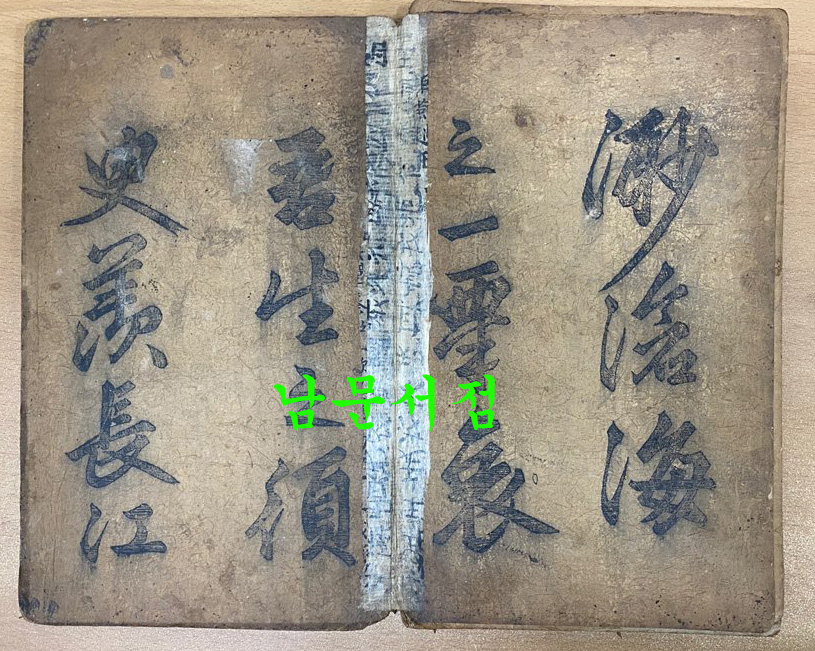 渺滄海
之一粟哀
吾生之須
臾羨長江
남문서점